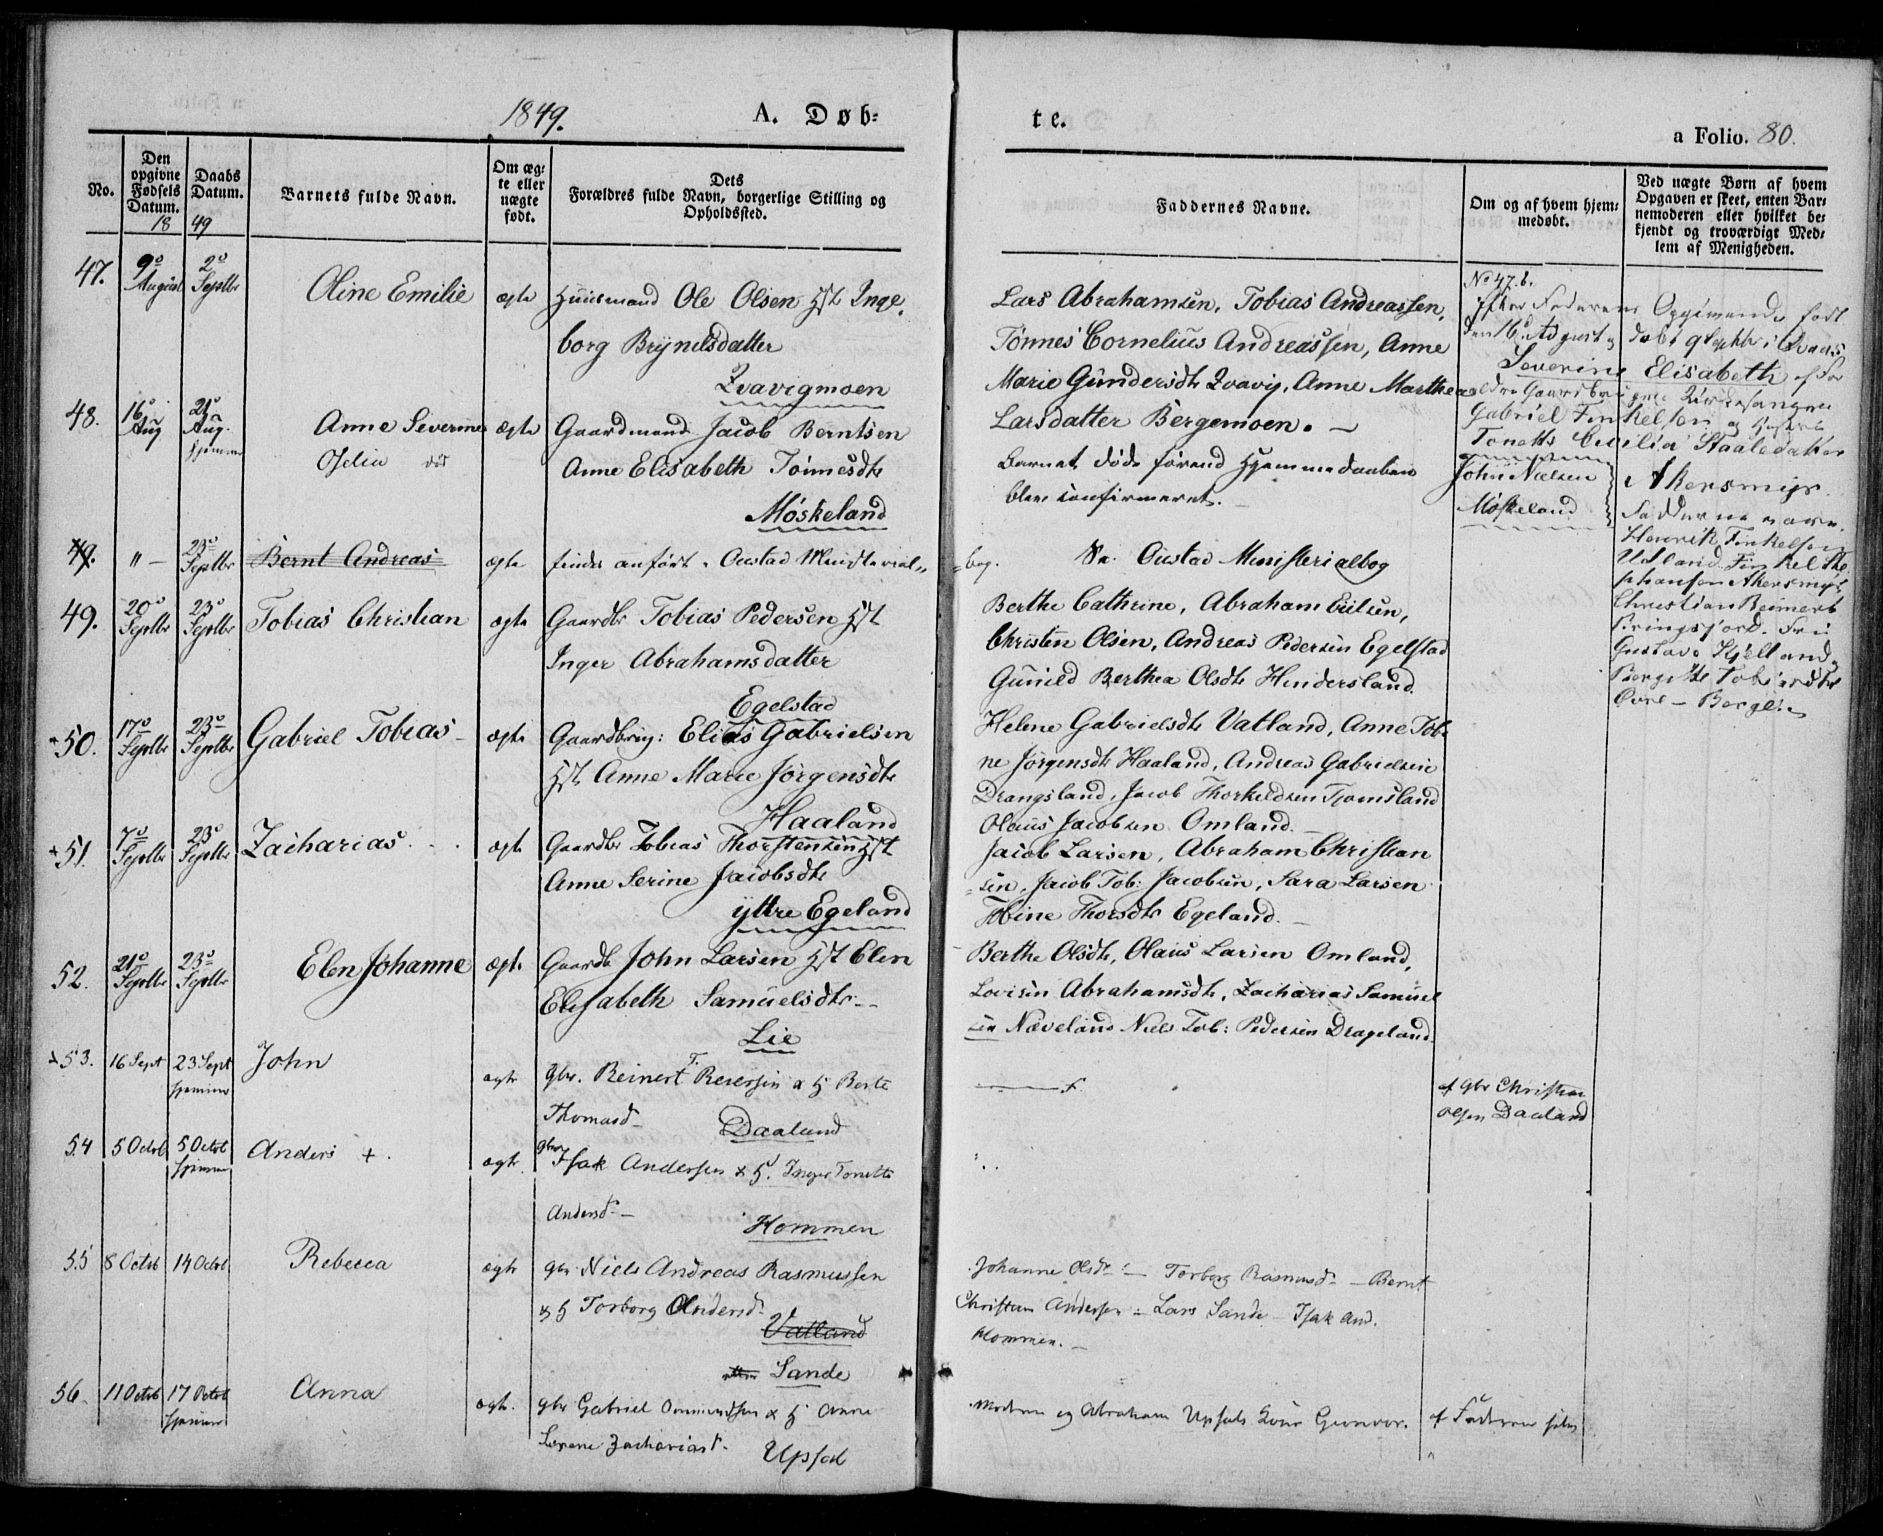 1849.
A. Døb:
te.
a Folio. 80.
No.
Den
opgivne
Fødsels
Datum.
18
Daabs
Datum.
49
Barnets fulde Navn.
Om æg-
te eller
uægte
født.
Dets
Forældres fulde Navn, borgerlige Stilling og
Opholdssted.
Faddernes Navne.
Om og af hvem hjem-
medøbt.
Ved uægte Børn af hvem
Opgaven er skeet, enten Bar-
nemoderen eller hvilket be-
kjendt og troværdigt Med-
lem af Menigheden.
47.
9
August
2
Septbr
Oline Emilie
ægte
Huusmand Ole Olsen Hst Inge-
borg Brynildsdatter
Qvavigmoen
Lars Abrahamsen, Tobias Andreassen,
Tönnes Cornelius Andreassen, Anne
Marie Gundersdtr Qvavig, Anne Marthea
Larsdatter Bergemoen. —
No 47.b.
Efter Faderens Opgivende født
den 16 August og døbt 9 Septbr
Severine Elisabeth af For
ældre Gaardbruger Kirkesanger
Gabriel Finkelsen og Hustru
Tonette Cecilia Staalesdatter
Akersmyr.
Fadderne vare
Henrik Finkelsen
Christian Reinert
Gustava Kjelland
Øvre-Berge
48.
16
Aug
21
Aug.
hjemme
Anne Severine
Ofelia død
ægte
Gaardmand Jacob Berntsen
Anne Elisabeth Tönnesdtr
Möskeland
Barnet døde førend Hjemmedaaben
blev confirmeret.
John Nielsen
Möskeland
49.
" —
23
Septbr
Bernt Andreas
ægte
findes anført i Oustad Ministerial-
bog.
Se Oustad Ministerialbog
49.
20
Septbr
23
Septbr
Tobias Christian
ægte
Gaardbr Tobias Pedersen Hst
Inger Abrahamsdatter
Egelstad
Berthe Cathrine, Abraham Eilsen,
Christen Olsen, Andreas Pedersen Egelstad
Gunild Berthea Olsdtr Hindersland
50.
17
Septbr
23
Septbr
Gabriel Tobias
ægte
Gaardbrug: Elias Gabrielsen
Hst Anne Marie Jörgensdtr
Haaland
Helene Gabrielsdtr Vatland, Anne Tobi-
ne Jörgensdtr Haaland, Andreas Gabrielsen
Drangsland, Jacob Thorkeldsen Tjomsland
Olaus Jacobsen Omland. —
51.
7
Septbr
23
Septbr
Zacharias
ægte
Gaardbr Tobias Thorstensen Hst
Anne Serine Jacobsdtr
yttre Egeland
Jacob Larsen, Abraham Christian
sen, Jacob Tob: Jacobsen, Sara Larsen
Thorsdtr Egeland. —
52.
21
Septbr
23
Septbr
Elen Johanne
ægte
Gaardb John Larsen Hst Elen
Elisabeth Samuelsdtr. —
Lie
Berthe Olsdtr, Olaus Larsen Omland,
Lovisen Abrahamsdtr, Zacharias Samuel
sen Næveland Niels Tob: Pedersen Drageland
53.
16 Sept
23 Sept
hjemme
John
ægte
Gbr. Reinert T. Reiersen & H Berte
Thomasd
Daaland
af Gbr Christian
Olsen Daaland
54
5 Octob
5 Octob
hjemme
Anders +.
ægte.
gbr
Isak Andersen & H. Inger Tonette
Andersd —
Hommen
55
8 Octob
14 Octob
Rebecca
ægte
gbr Niels Andreas Rasmussen
& H Torborg Andersd
Vatland
Sande
Johanne Olsdr — Torborg Rasmusd — Bernt
Christian Andersen — Lars Sande — Isak And.
Hommen. —
56.
11 Octob
17 Octob
hjemme
Anna
ægte.
gbr Gabriel Ommundsen & H Anne
Serene Zachariasd.
Upsal
Moderen og Abraham Upsals Kone Gunvor.
af Faderen selv